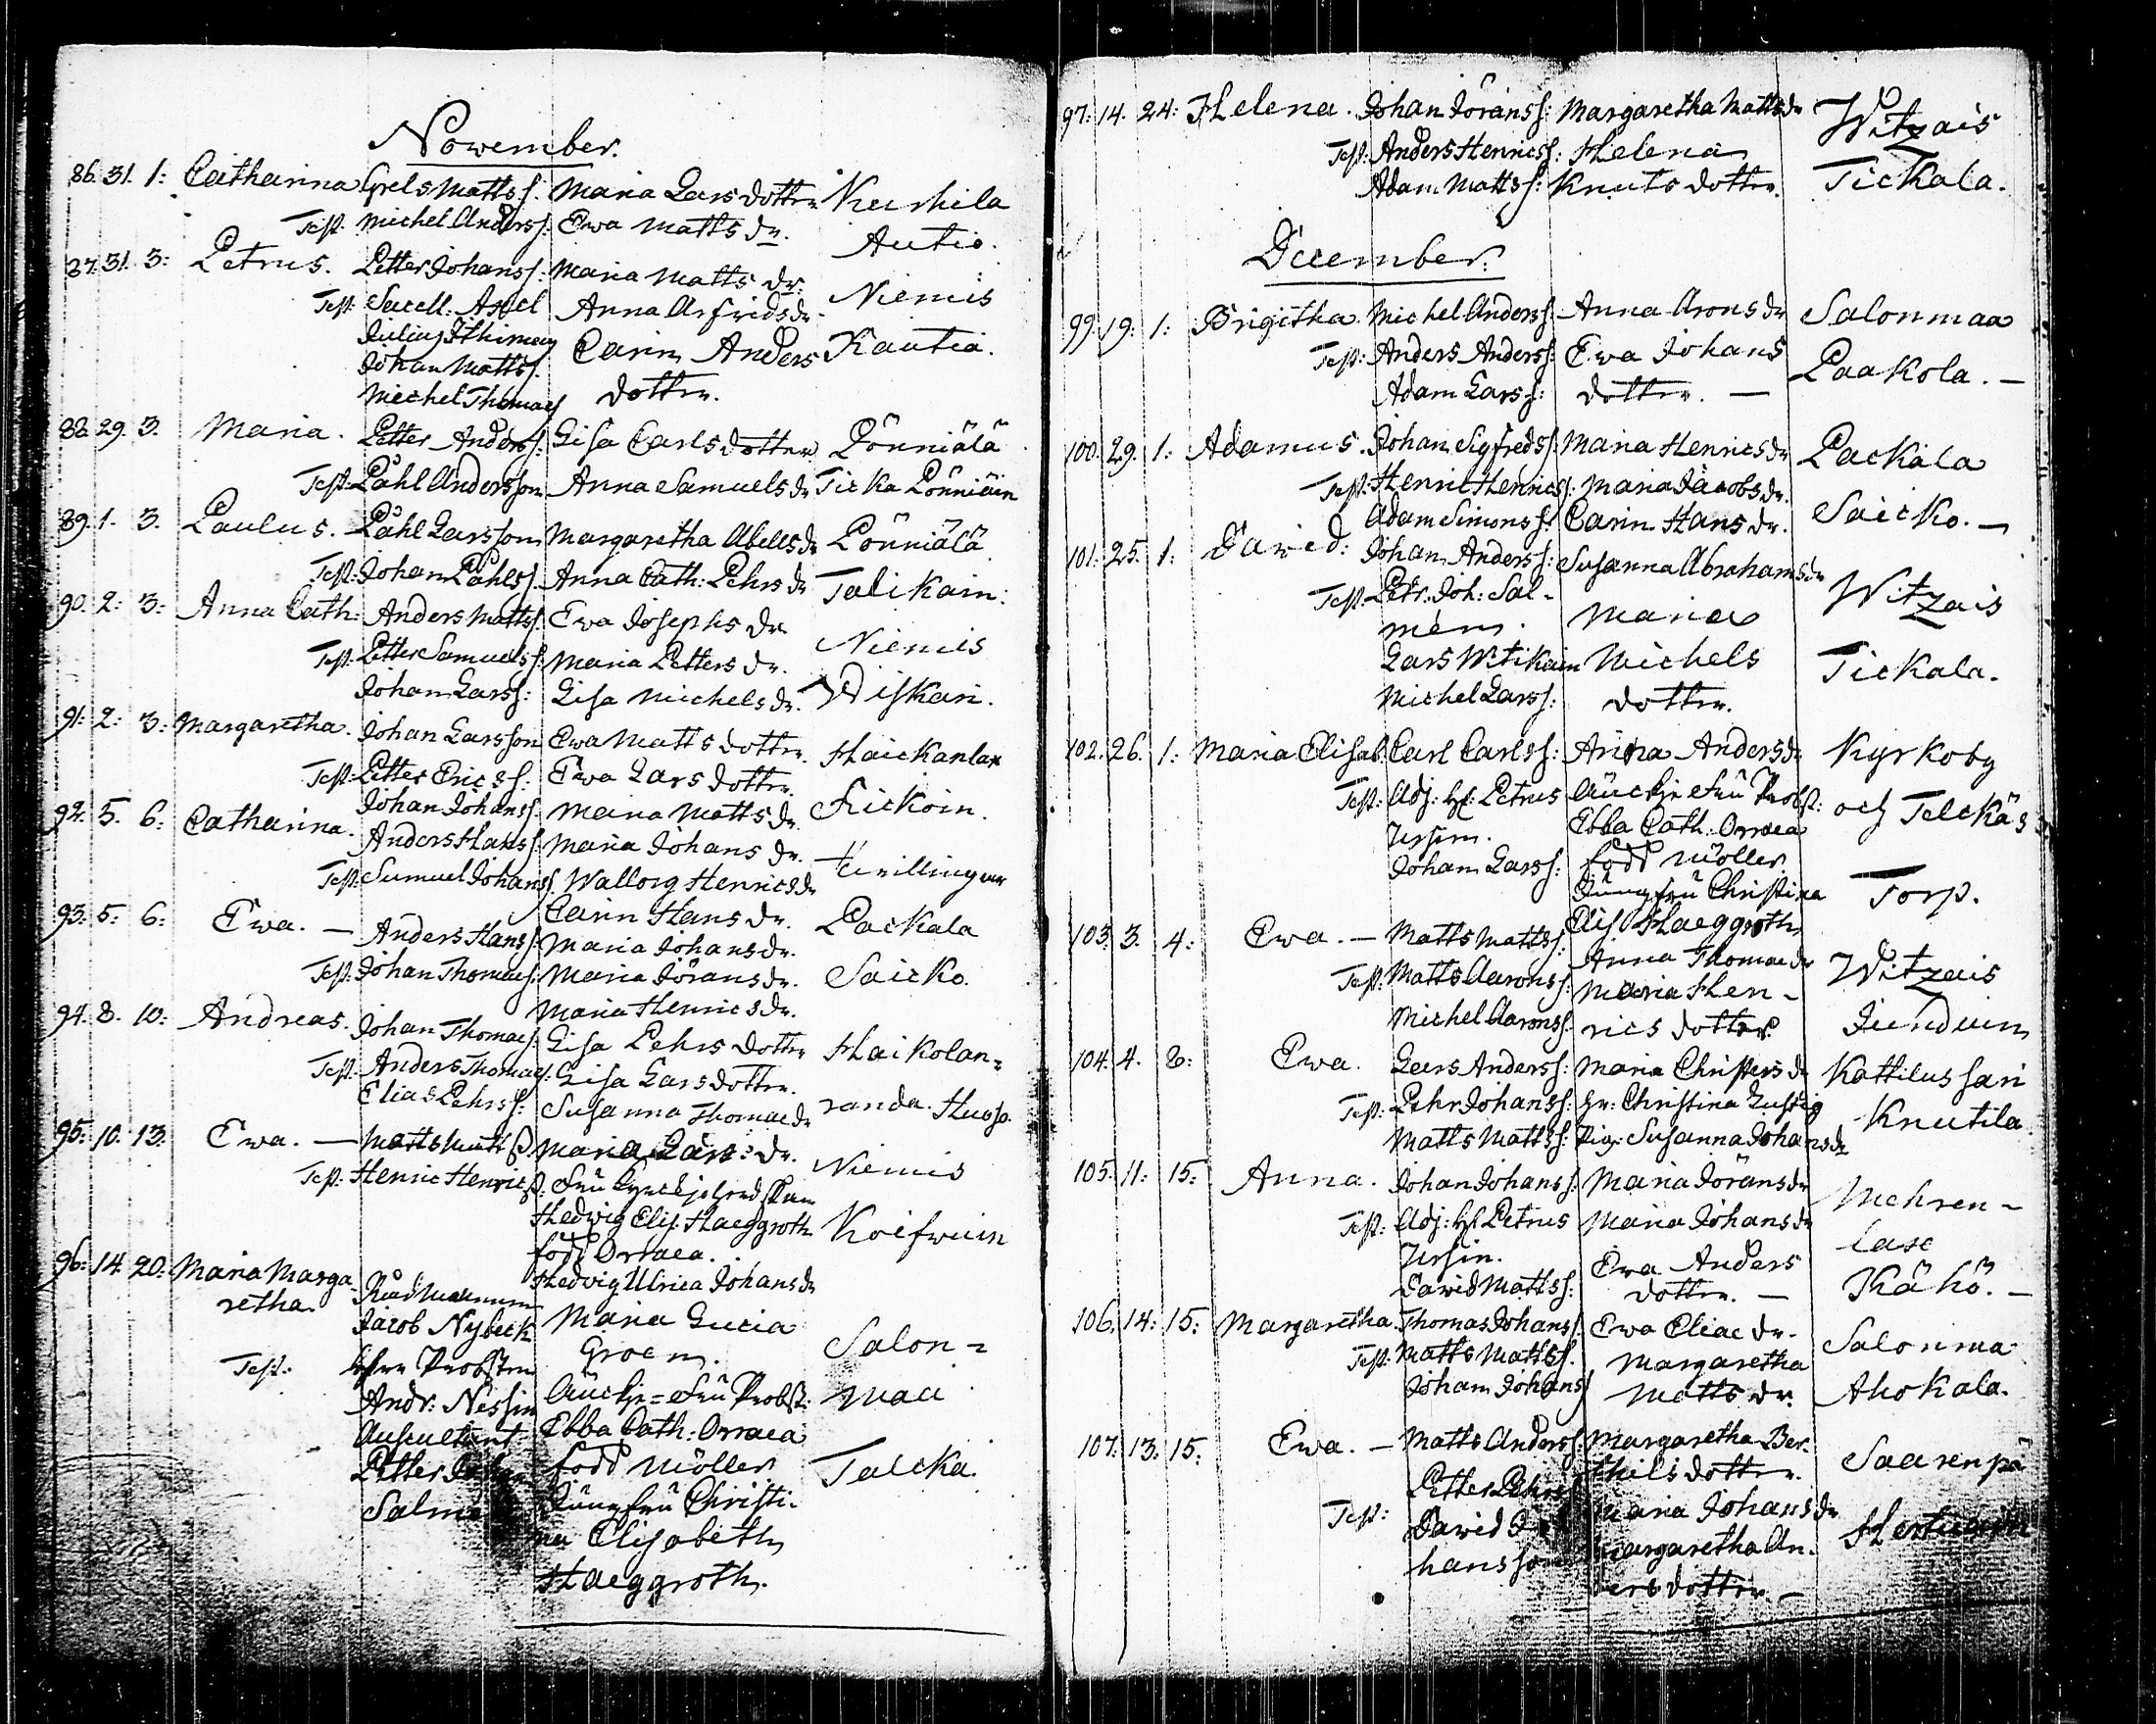 November.
86. 31. 1: Catharina Grels Mattss: Maria Lars dotter Kurkila
Test. Michel Anderss: Ewa Matts dr. Autio.
87. 31. 3: Petrus. Petter Johanss: Maria Matts dr. Niemis
Test: Sacell. Axel Anna Arfrids dr.
Julius Ithimæus Carin Anders Kautia.
Johan Mattss. dotter.
Michel Thomas
88. 29. 3. Maria. Petter Anderss: Lisa Carls dotter Pönniälä
Test: Påhl Andersson Anna Samuels dr Ticka Pönniäin
89. 1. 3. Paulus. Påhl Larsson Margaretha Abells dr Pönniälä
Test: Johan Påhlss. Anna Cath: Pehrs dr Talikain:
90. 2: 3: Anna Cath: Anders Mattss. Ewa Josephs dr. Niemis
Test: Petter Samuelss: Maria Petters dr.
Johan Larss: Lisa Michels dr. Wiskari.
91: 2: 3: Margaretha. Johan Larsson Ewa Matts dotter. Haickanlax
Test: Petter Ericss: Ewa Lars dotter.
Johan Johanss: Maria Matts dr. Fickoin.
92. 5. 6: Catharina. Anders Hanss: Maria Johans dr. tvillingar
Test: Samuel Johanss. Wallorg Henrics dr
Carin Hans dr. Packala
93: 5: 6: Ewa. — Anders Hanss: Maria Johans dr.
Test: Johan Thomass: Maria Jörans dr. Saicko.
Maria Henrics dr.
94. 8. 10: Andreas. Johan Thomass: Lisa Pehrs dotter Haikolan=
Test: Anders Thomass: Lisa Lars dotter.
Elias Pehrss: Susanna Thomæ dr randa. Husso.
95: 10. 13: Ewa. — Matts Mattss Maria Lars dr. Niemis
Test: Henric Henricss: Fru
Hedwig Elis: Haeggroth Koifwuin
född Orraea.
Hedvig Ulrica Johans dr
96: 14. 20: Maria Marga Rådmannen
retha. Jacob Nybeck Maria Lucia Salon=
Groen.
Test: Herr Probsten
Andr: Nessin Fru Probst: maa
Auscultant Ebba Cath: Orraea
Petter född Möller Talcka.
Jungfru Christi-
na Elisabeth
Haeggroth.
97: 14. 24: Helena. Johan Jöranss: Margaretha Matts dr Witzais
Test: Anders Henricss: Helena
Adam Mattss: Knuts dotter. Tickala.
December.
99. 19: 1: Brigitha. Michel Anderss. Anna Arons dr Salonmaa
Test: Anders Anderss: Ewa Johans
Adam Larss: dotter. — Paakola. —
100. 29. 1: Adamus. Johan Sigfredss: Maria Henrics dr Packala
Test: Henric Henricss: Maria Jacobs dr.
Adam Simonss: Carin Hans dr. Saicko. —
101. 25. 1: David: Johan Anderss: Susanna Abrahams dr
Test: Petr: Joh: Sal- Witzais
mén. Maria
Lars Witikain Michels Tickala.
Michel Larss: dotter.
102. 26. 1: Maria Elisab: Carl Carlss: Anna Anders dr Kyrkoby
Test: Adj: H: Petrus Fru Probst:
Ursin. Ebba Cath: Orraea och Telckäs
Johan Larss: född Möller
Jungfru Christina Torp.
Elis Haeggroth
103. 3. 4: Ewa. — Matts Mattss: Anna Thomæ dr Witzais
Test: Matts Aaronss: Maria Hen-
Michel Aaronss: rics dotter Junduin
104. 4. 8: Ewa. Lars Anderss: Maria Christers dr Kattilussari
Test: Pehr Johanss: Hr: Christina Lustig
Matts Mattss: Pig: Susanna Johans dr Knutila
105. 11: 15: Anna. Johan Johanss: Maria Jörans dr Mehren-
Test: Adj: H: Petrus Maria Johans dr
Ursin. Ewa Anders laxe
David Mattss: dotter. — Kähö. —
106. 14: 15: Margaretha. Thomas Johanss. Ewa Eliae dr. Salonma
Test: Matts Mattss. Margaretha
Johan Johanss Matts dr. Ahokala.
107. 13. 15: Ewa. — Matts Anderss: Margaretha Ber- Saarenpä
Petter Pehrss thils dotter.
Test: David Jo Maria Johans dr
hansson Margaretha An-
ders dotter. —